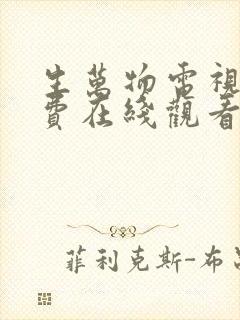 生萬物電視
費在綫觀看
菲利克斯-布